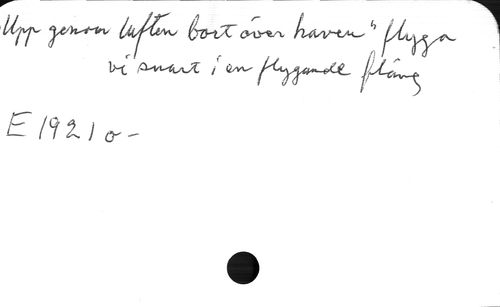 Upp genom luften bort över haven "flyga
vi snart i en flygande fläng
E 1921 o -